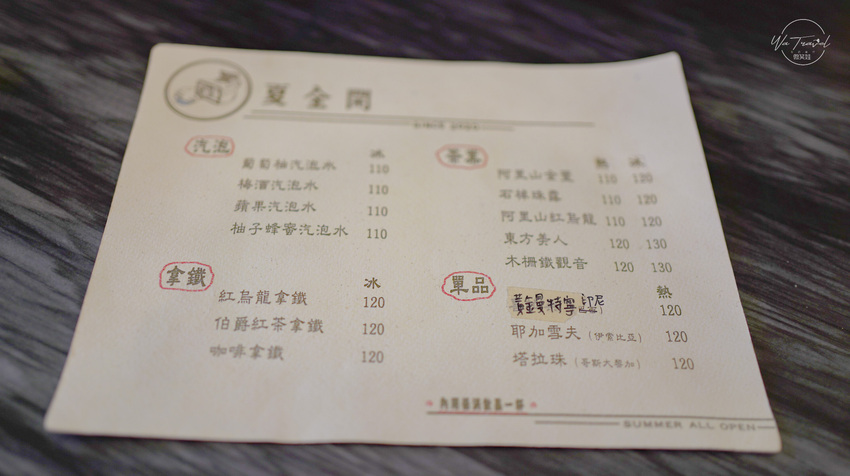 Wa Travel
微笑哇
夏全開
汽泡 冰
葡萄柚汽泡水 110
梅酒汽泡水 110
蘋果汽泡水 110
柚子蜂蜜汽泡水 110
拿鐵 冰
紅烏龍拿鐵 120
伯爵紅茶拿鐵 120
咖啡拿鐵 120
茶葉 熱 冰
阿里山金萱 110 120
石棹珠露 110 120
阿里山紅烏龍 110 120
東方美人 120 130
木柵鐵觀音 120 130
單品 熱
黃金曼特寧 印尼 120
耶加雪夫 (伊索比亞) 120
塔拉珠 (哥斯大黎加) 120
內用最低飲品一杯
SUMMER ALL OPEN